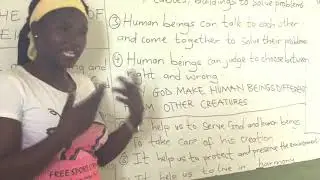 buildings to solve problems
③ Human beings can talk to each other
and come together to solve their problems
④ Human beings can judge to choose between
right and wrong
GOD MAKE HUMAN BEINGS DIFFERENT
OM OTHER CREATURES
help us to serve God and human beings
To take care of his creation
② It help us to protect and preserve the environment
It help us to live in harmony